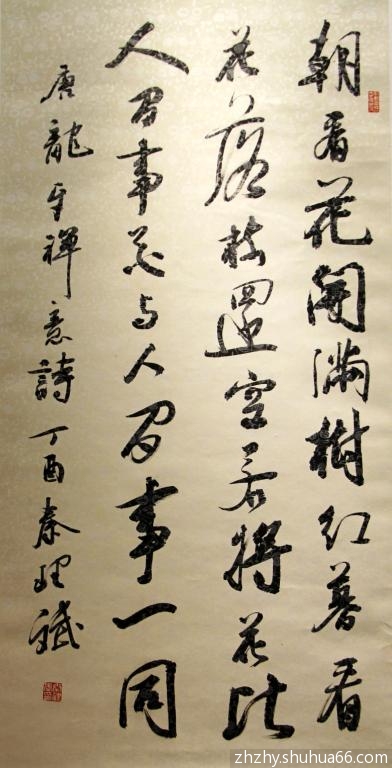 朝看花開滿樹紅暮看
花落樹還空若將花比
人間事花与人間事一同
唐龍牙禪意詩丁酉秦理斌
zhzhy.shuhua66.com